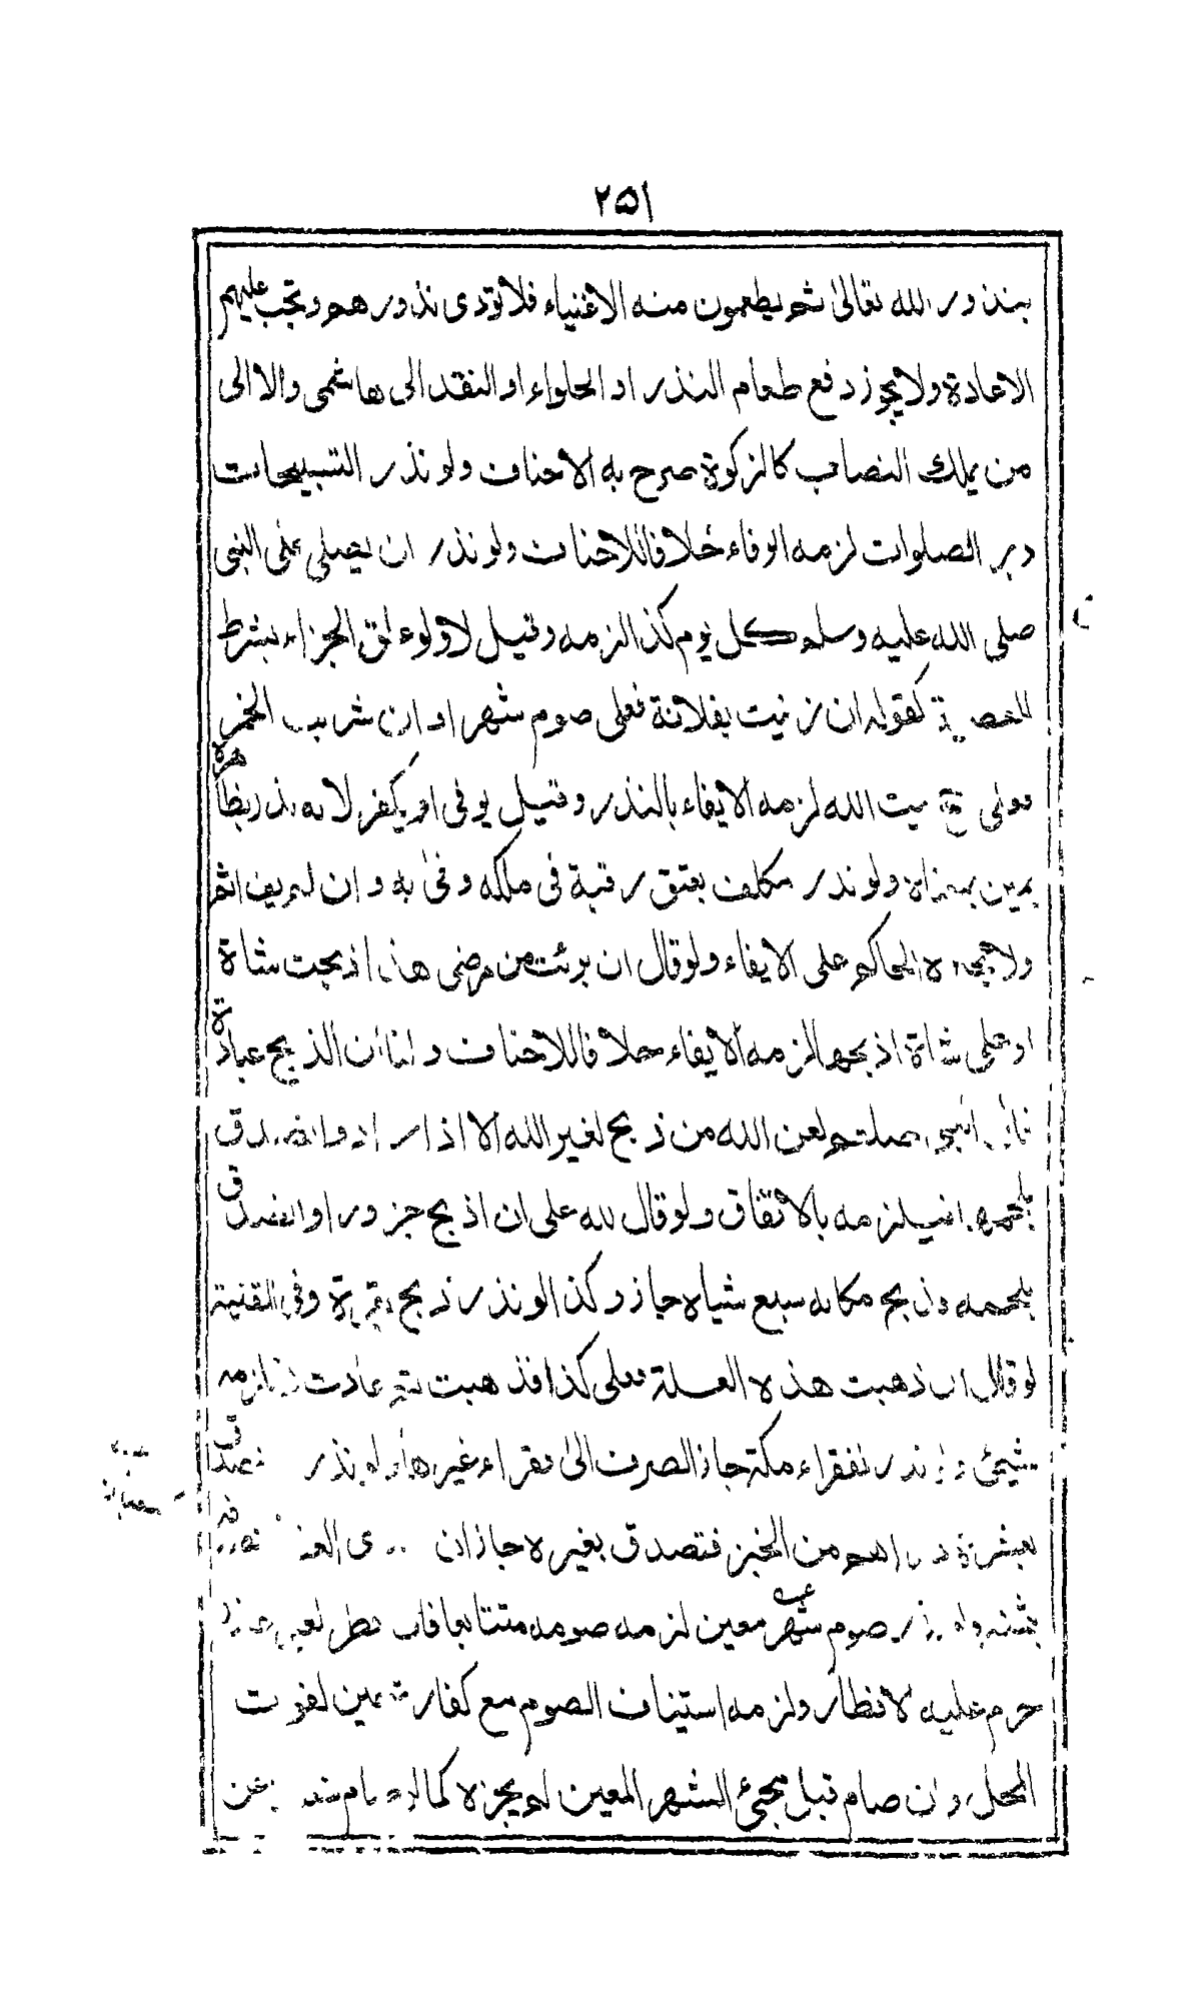 ٢٥١
بنذور الله تعالیٰ ثم یطعمون منه الاغنیاء فلا تؤدی نذورهم وتجب علیهم
الاعادة ولا یجوز دفع طعام النذر او الحلواء او النقد الی هاشمی ولا الی
من یملك النصاب کالزکوة صرح به الاحناف ولو نذر التسبیحات
دبر الصلوات لزمه الوفاء خلافا للاحناف ولو نذر ان یصلی علی النبی
صلی الله علیه وسلم کل یوم کذا لزمه وقیل لا ولو علق الجزاء بشرط
کقوله ان زنیت بفلانة فعلی صوم شهر او ان شربت الخمر
فعلی حج بیت الله لزمه الایفاء بالنذر وقیل یوفی او یکفر لانه نذر بظاهره
یمین بمعناه ولو نذر مکلف بعتق رقبة فی ملکه وفیٰ به وان لم یف اثم
ولا یجبره الحاکم علی الایفاء ولو قال ان برئت من مرضی هذا ذبحت شاة
او علی شاة اذبحها لزمه الایفاء خلافا للاحناف ولنا ان الذبح عبادة
صلعم لعن الله من ذبح لغیر الله الا اذا اراد والتصدق
بلحمها فیلزمه بالاتفاق ولو قال لله علی ان اذبح جزورا والتصدق
بلحمه وذبح مکانه سبع شیاه جاز وکذا لو نذر ذبح بقرة وفی القنیة
لو قال ان ذهبت هذه العلة فعلی کذا فذهبت ثم عادت لا یلزمه
شیئ ولو نذر لفقراء مکة جاز الصرف الیٰ فقراء غیرها ولو نذر تصدق
بعشرة دراهم من الخبز فتصدق بغیره جاز ان
صوم شهر معین لزمه صومه متتابعا فان افطر
حرم علیه الافطار ولزمه استیناف الصوم مع کفارة یمین لفوت
المحل وان صام قبل مجیئ الشهر المعین لم یجزه کما لو صام عن